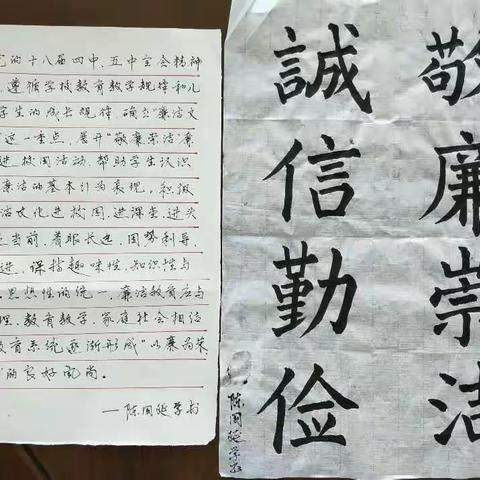 的十八届四中、五中全会精神
遵循学校教育教学规律和儿
学生的成长规律,确立"廉洁文
这一重点,展开"敬廉崇洁"廉
进校园活动.帮助学生认识
廉洁的基本行为表现,积极
洁文化进校园,进课堂,进头
当前,着眼长远,因势利导,
进,保持趣味性、知识性与
思想性的统一,廉洁教育应与
理、教育教学、家庭社会相结
教育系统逐渐形成"以廉为荣
的良好风尚。
—陈国延学书
敬廉崇洁
誠信勤俭
陈国延学书